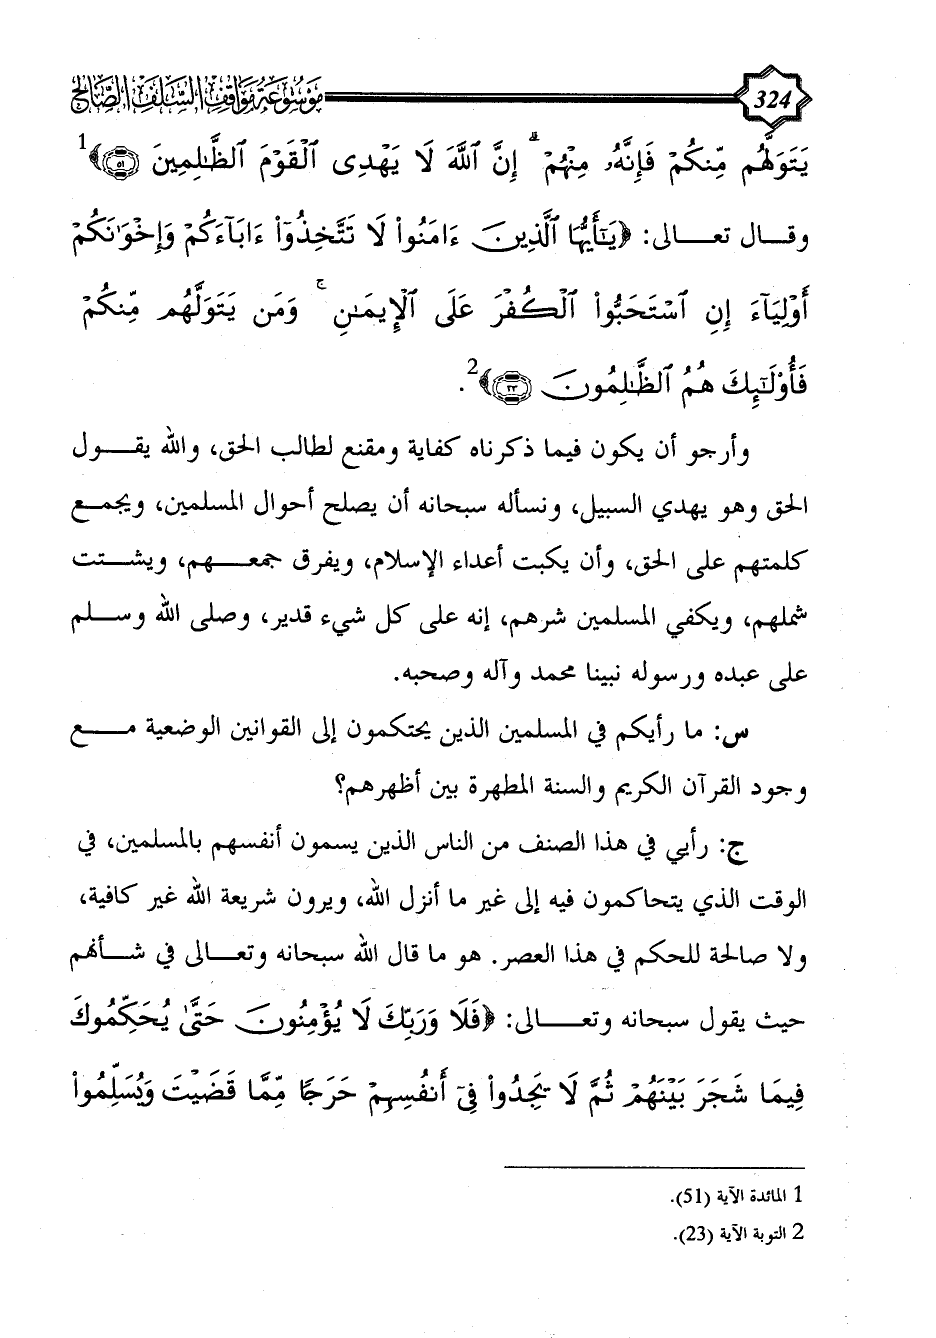 324 موسوعة مواقف السلف الصالح
يَتَوَلَّهُم مِّنكُمْ فَإِنَّهُۥ مِنْهُمْ ۗ إِنَّ ٱللَّهَ لَا يَهْدِى ٱلْقَوْمَ ٱلظَّـٰلِمِينَ ﴿٥١﴾ 1
وقال تعالى: ﴿يَـٰٓأَيُّهَا ٱلَّذِينَ ءَامَنُوا۟ لَا تَتَّخِذُوٓا۟ ءَابَآءَكُمْ وَإِخْوَٰنَكُمْ
أَوْلِيَآءَ إِنِ ٱسْتَحَبُّوا۟ ٱلْكُفْرَ عَلَى ٱلْإِيمَـٰنِ ۚ وَمَن يَتَوَلَّهُم مِّنكُمْ
فَأُو۟لَـٰٓئِكَ هُمُ ٱلظَّـٰلِمُونَ ٢٣﴾2.
وأرجو أن يكون فيما ذكرناه كفاية ومقنع لطالب الحق، والله يقول
الحق وهو يهدي السبيل، ونسأله سبحانه أن يصلح أحوال المسلمين، ويجمع
كلمتهم على الحق، وأن يكبت أعداء الإسلام، ويفرق جمعهم، ويشتت
شملهم، ويكفي المسلمين شرهم، إنه على كل شيء قدير، وصلى الله وسلم
على عبده ورسوله نبينا محمد وآله وصحبه.
س: ما رأيكم في المسلمين الذين يحتكمون إلى القوانين الوضعية مع
وجود القرآن الكريم والسنة المطهرة بين أظهرهم؟
ج: رأيي في هذا الصنف من الناس الذين يسمون أنفسهم بالمسلمين، في
الوقت الذي يتحاكمون فيه إلى غير ما أنزل الله، ويرون شريعة الله غير كافية،
ولا صالحة للحكم في هذا العصر. هو ما قال الله سبحانه وتعالى في شأنهم
حيث يقول سبحانه وتعالى: ﴿فَلَا وَرَبِّكَ لَا يُؤْمِنُونَ حَتَّىٰ يُحَكِّمُوكَ
فِيمَا شَجَرَ بَيْنَهُمْ ثُمَّ لَا يَجِدُوا۟ فِىٓ أَنفُسِهِمْ حَرَجًا مِّمَّا قَضَيْتَ وَيُسَلِّمُوا۟
1 المائدة الآية (51).
2 التوبة الآية (23).